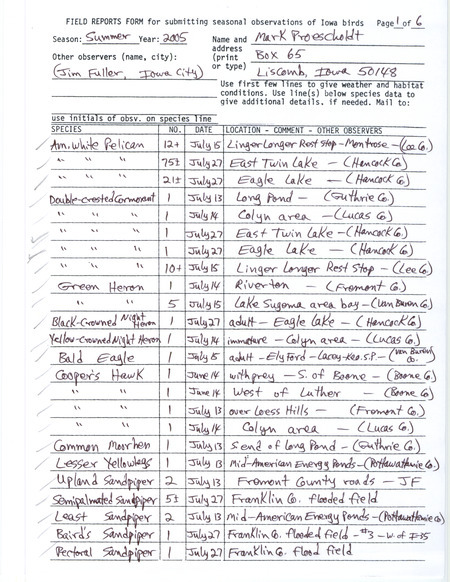 FIELD REPORTS FORM for submitting seasonal observations of Iowa birds Page 1 of 6
Season: Summer Year: 2005 Name and Mark Proescholdt
Other observers (name, city): address (print or type) Box 65
(Jim Fuller, Iowa City) Liscomb, Iowa 50148
Use first few lines to give weather and habitat
conditions. Use line(s) below species data to
give additional details. if needed. Mail to:
use initials of obsv. on species line
SPECIES NO. DATE LOCATION - COMMENT - OTHER OBSERVERS
Am. White Pelican 12+ July 15 Linger Longer Rest Stop - Montrose - (Lee Co.)
" " " 75± July 27 East Twin Lake - (Hancock Co.)
" " " 21± July 27 Eagle Lake - (Hancock Co.)
Double-crested Cormorant 1 July 13 Long Pond - (Guthrie Co.)
" " " 1 July 14 Colyn area - (Lucas Co.)
" " " 1 July 27 East Twin Lake - (Hancock Co.)
" " " 1 July 27 Eagle Lake - (Hancock Co.)
" " " 10+ July 15 Linger Longer Rest Stop - (Lee Co.)
Green Heron 1 July 14 Riverton - (Fremont Co.)
" " 5 July 15 Lake Sugema area bay - (Van Buren Co.)
Black-Crowned Night Heron 1 July 27 adult - Eagle Lake - (Hancock Co.)
Yellow-Crowned Night Heron 1 July 14 immature - Colyn area - (Lucas Co.)
Bald Eagle 1 July 15 adult - Ely Ford - Lacey-Keo. S.P. - (Van Buren Co.)
Cooper's Hawk 1 June 14 with prey - S. of Boone - (Boone Co.)
" " 1 June 14 West of Luther - (Boone Co.)
" " 1 July 13 over Loess Hills - (Fremont Co.)
" " 1 July 14 Colyn area - (Lucas Co.)
Common Moorhen 1 July 13 S end of Long Pond - (Guthrie Co.)
Lesser Yellowlegs 1 July 13 Mid-American Energy Ponds - (Pottawattamie Co.)
Upland Sandpiper 2 July 13 Fremont County roads - JF
Semipalmated Sandpiper 5± July 27 Franklin Co. flooded field
Least Sandpiper 2 July 13 Mid-American Energy Ponds - (Pottawattamie Co.)
Baird's Sandpiper 1 July 27 Franklin Co. flooded field - #3 - W of I-35
Pectoral Sandpiper 1 July 27 Franklin Co. flood field